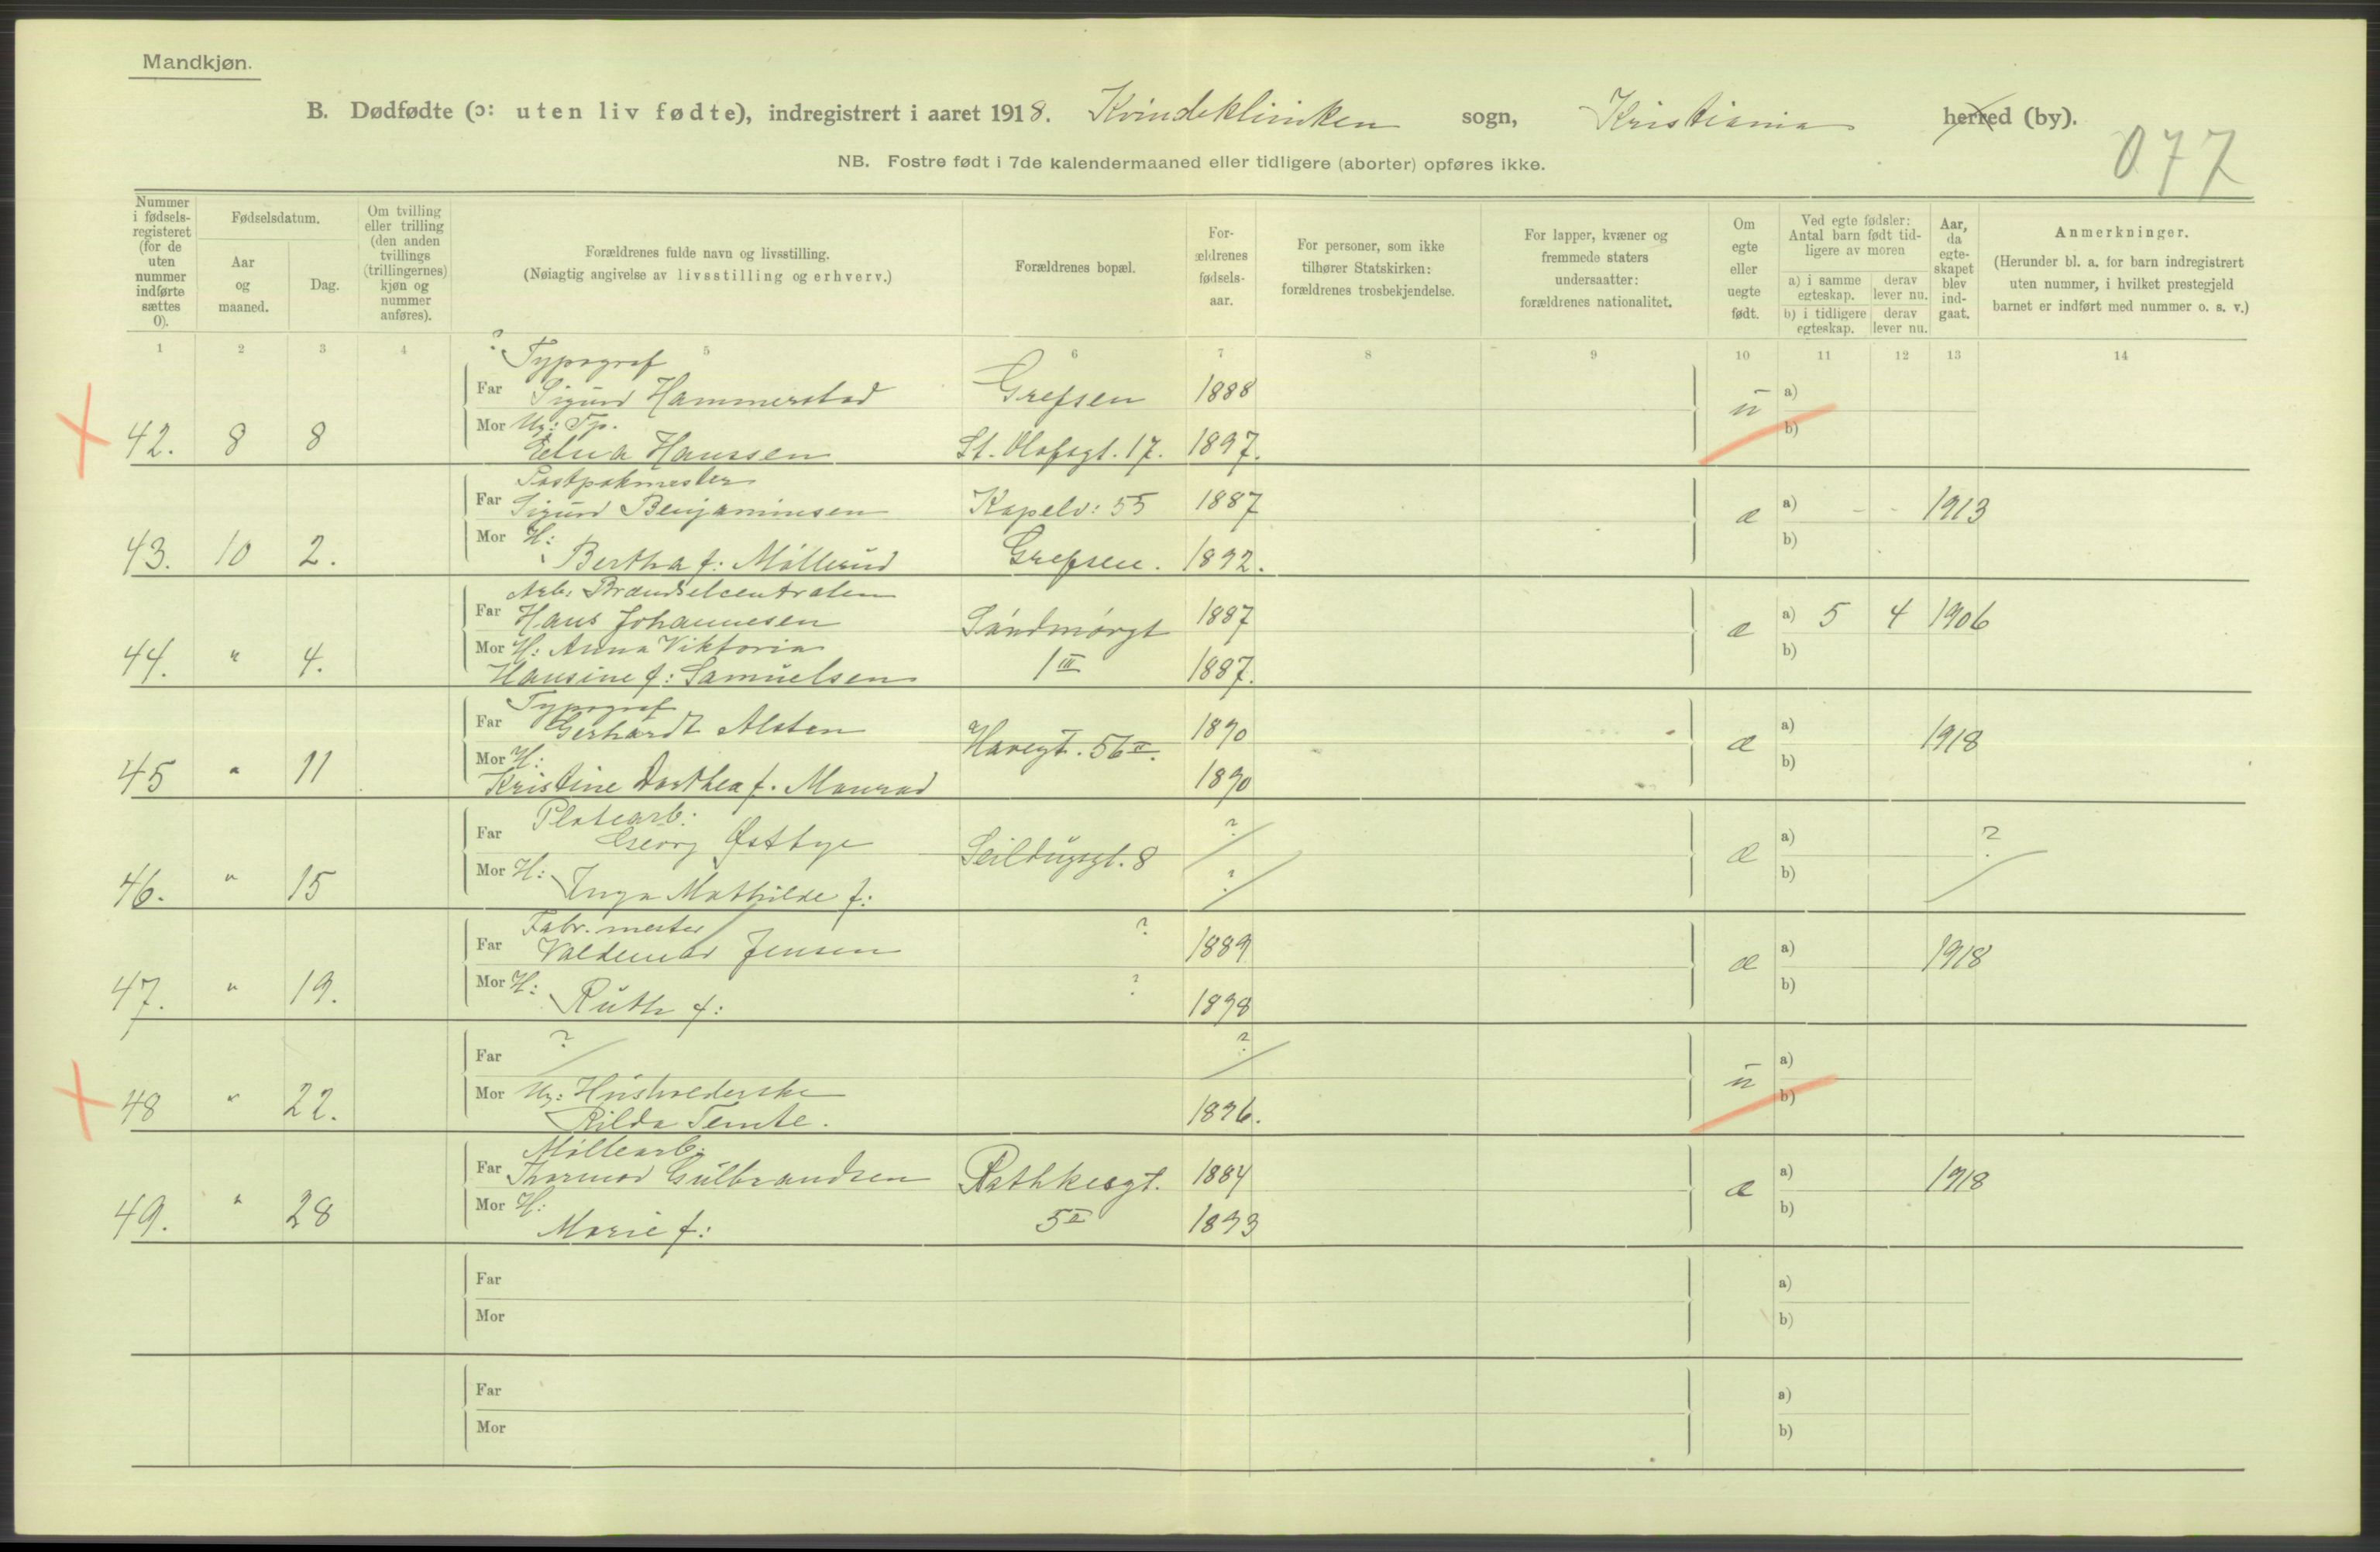 Mandkjøn.
B. Dødfødte (ɔ: uten liv fødte), indregistrert i aaret 1918. Kvindeklinikken sogn, Kristiania herred (by).
077
NB. Fostre født i 7de kalendermaaned eller tidligere (aborter) opføres ikke.
Nummer i fødsels-registeret (for de uten nummer indførte sættes 0).
Fødselsdatum.
Aar og maaned.
Dag.
Om tvilling eller trilling (den anden tvillings (trillingernes) kjøn og nummer anføres).
Forældrenes fulde navn og livsstilling.
(Nøiagtig angivelse av livsstilling og erhverv.)
Forældrenes bopæl.
For-ældrenes fødsels-aar.
For personer, som ikke tilhører Statskirken: forældrenes trosbekjendelse.
For lapper, kvæner og fremmede staters undersaatter: forældrenes nationalitet.
Om egte eller uegte født.
Ved egte fødsler: Antal barn født tid-ligere av moren
a) i samme egteskap. derav lever nu.
b) i tidligere egteskap. derav lever nu.
Aar, da egte-skapet blev ind-gaat.
Anmerkninger.
(Herunder bl. a. for barn indregistrert uten nummer, i hvilket prestegjeld barnet er indført med nummer o. s. v.)
1 2 3 4 5 6 7 8 9 10 11 12 13 14
? Typograf
Far Sigurd Hammerstad Grefsen 1888 a)
42. 8 8 Mor Ug: Tp. u b)
Elna Hanssen St. Olafsgt. 17. 1897.
Postpakmester
Far Sigurd Benjaminsen Kapelv: 55 1887 a) - - 1913
43. 10 2. Mor H: æ b)
Bertha f: Møllerud Grefsen. 1892.
Arb. Brændselcentralen
Far Hans Johannesen Søndmørgt 1887 a) 5 4 1906
44. " 4. Mor H: Anna Viktoria æ b)
Hansine f: Samuelsen 1 III 1887.
Typograf
Far Gerhardt Alsten 1890 a) 1918
45 " 11 Mor H: Havegt. 56 II. æ b)
Kristine Dorthea f. Monrad 1890
Platearb:
Far Georg Østbye ? a) ?
46. " 15 Mor H: Seildugsgt. 8 æ b)
Inga Mathilde f: ?
Fabr. mester
Far Valdemar Jensen ? 1889 a) 1918
47. " 19. Mor H: ? æ b)
Ruth f: 1898
Far ? ? a)
48 " 22. Mor Ug: Husholderske u b)
1896.
Møllearb:
Far Thormod Gulbrandsen Rathkesgt. 1884 a) 1918
49. " 28 Mor H: æ b)
Marie f: 5 II 1893
Far a)
Mor b)
Far a)
Mor b)